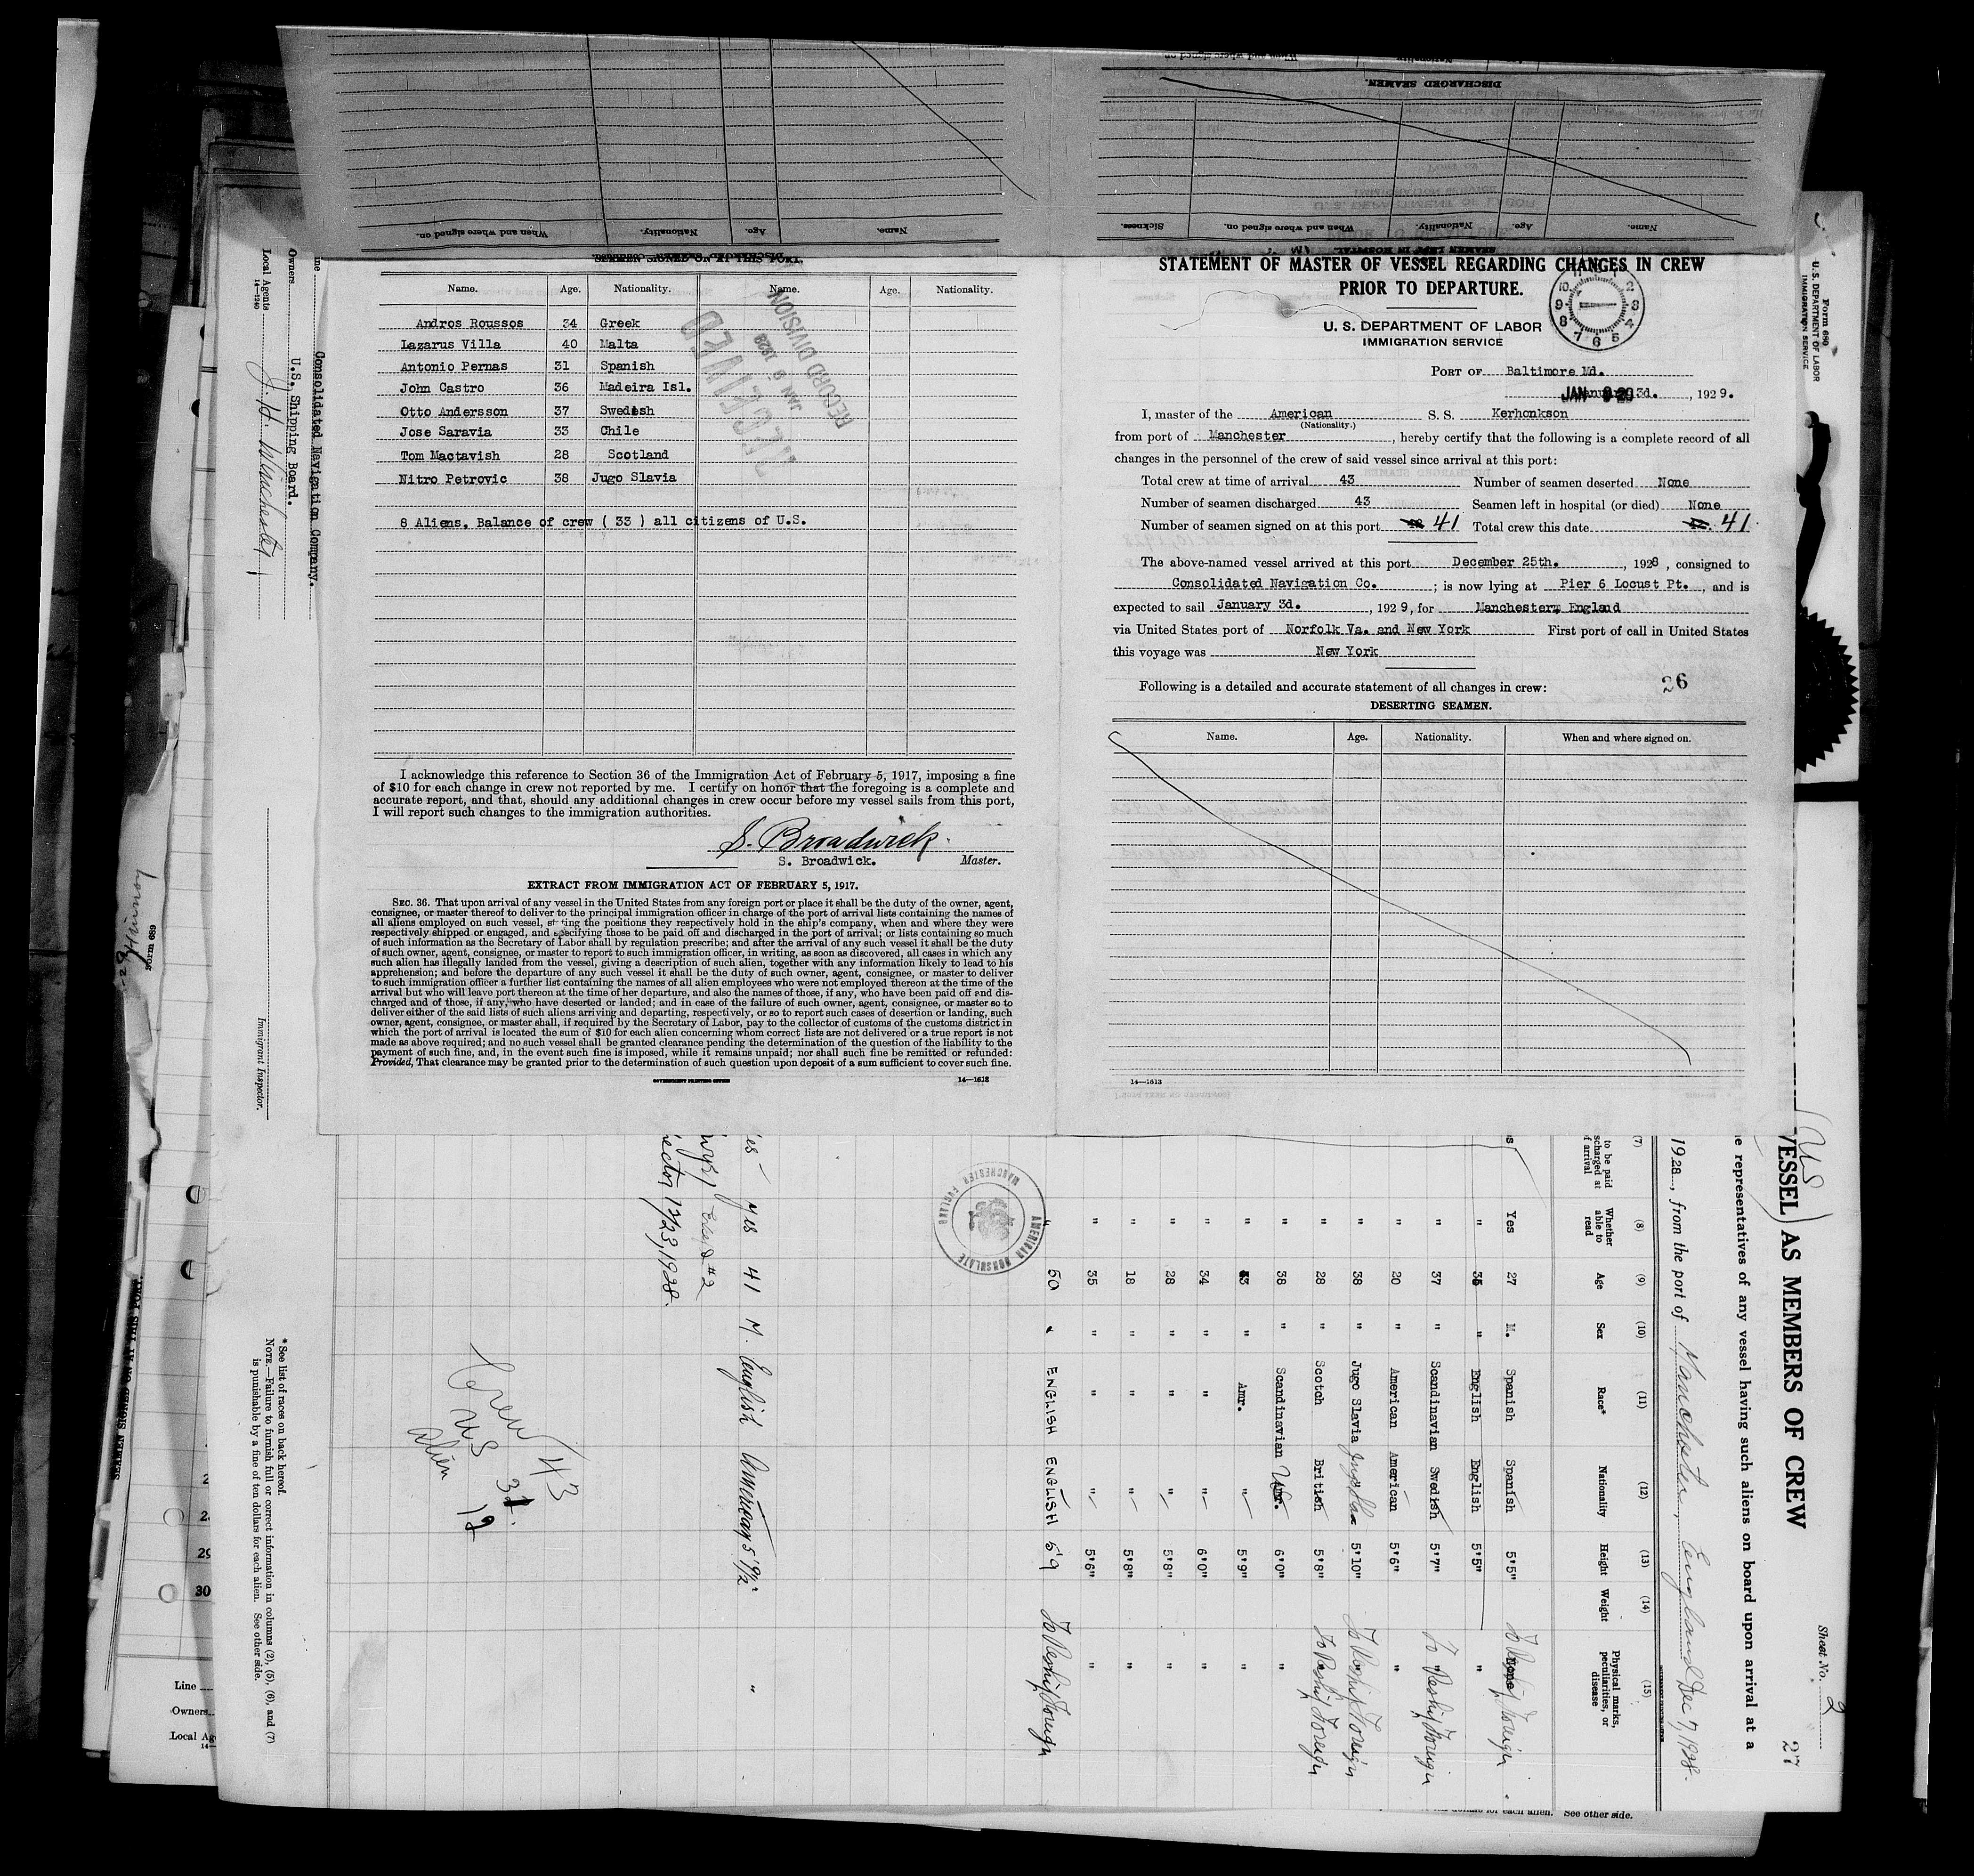 SEAMEN SIGNED ON AT THIS PORT.
Name. Age. Nationality. Name. Age. Nationality.
Andros Roussos 34 Greek
Lazarus Villa 40 Malta
Antonio Pernas 31 Spanish
John Castro 36 Madeira Isl.
Otto Andersson 37 Swedish
Jose Saravia 33 Chile
Tom Mactavish 28 Scotland
Nitro Petrovic 38 Jugo Slavia
8 Aliens. Balance of crew ( 33 ) all citizens of U.S.
RECEIVED
JAN 9 1929
RECORD DIVISION
I acknowledge this reference to Section 36 of the Immigration Act of February 5, 1917, imposing a fine
of $10 for each change in crew not reported by me. I certify on honor that the foregoing is a complete and
accurate report, and that, should any additional changes in crew occur before my vessel sails from this port,
I will report such changes to the immigration authorities.
S. Broadwick.
S. Broadwick. Master.
EXTRACT FROM IMMIGRATION ACT OF FEBRUARY 5, 1917.
SEC. 36. That upon arrival of any vessel in the United States from any foreign port or place it shall be the duty of the owner, agent,
consignee, or master thereof to deliver to the principal immigration officer in charge of the port of arrival lists containing the names of
all aliens employed on such vessel, stating the positions they respectively hold in the ship's company, when and where they were
respectively shipped or engaged, and specifying those to be paid off and discharged in the port of arrival; or lists containing so much
of such information as the Secretary of Labor shall by regulation prescribe; and after the arrival of any such vessel it shall be the duty
of such owner, agent, consignee, or master to report to such immigration officer, in writing, as soon as discovered, all cases in which any
such alien has illegally landed from the vessel, giving a description of such alien, together with any information likely to lead to his
apprehension; and before the departure of any such vessel it shall be the duty of such owner, agent, consignee, or master to deliver
to such immigration officer a further list containing the names of all alien employees who were not employed thereon at the time of the
arrival but who will leave port thereon at the time of her departure, and also the names of those, if any, who have been paid off and dis-
charged and of those, if any, who have deserted or landed; and in case of the failure of such owner, agent, consignee, or master so to
deliver either of the said lists of such aliens arriving and departing, respectively, or so to report such cases of desertion or landing, such
owner, agent, consignee, or master shall, if required by the Secretary of Labor, pay to the collector of customs of the customs district in
which the port of arrival is located the sum of $10 for each alien concerning whom correct lists are not delivered or a true report is not
made as above required; and no such vessel shall be granted clearance pending the determination of the question of the liability to the
payment of such fine, and, in the event such fine is imposed, while it remains unpaid; nor shall such fine be remitted or refunded:
Provided, That clearance may be granted prior to the determination of such question upon deposit of a sum sufficient to cover such fine.
GOVERNMENT PRINTING OFFICE 14—1613
DISCHARGED SEAMEN.
Name. Age. Nationality. When and where signed on.
SEAMEN LEFT IN HOSPITAL
Name. Age. Nationality. When and where signed on. Sickness.
STATEMENT OF MASTER OF VESSEL REGARDING CHANGES IN CREW
PRIOR TO DEPARTURE.
U. S. DEPARTMENT OF LABOR
IMMIGRATION SERVICE
PORT OF Baltimore Md.
January 3d., 1929.
I, master of the American S. S. Kerhonkson
(Nationality.)
from port of Manchester, hereby certify that the following is a complete record of all
changes in the personnel of the crew of said vessel since arrival at this port:
Total crew at time of arrival 43 Number of seamen deserted None
Number of seamen discharged 43 Seamen left in hospital (or died) None
Number of seamen signed on at this port 41 Total crew this date 41.
The above-named vessel arrived at this port December 25th., 1928, consigned to
Consolidated Navigation Co.; is now lying at Pier 6 Locust Pt., and is
expected to sail January 3d., 1929, for Manchester, England
via United States port of Norfolk Va. and New York First port of call in United States
this voyage was New York
Following is a detailed and accurate statement of all changes in crew: 26
DESERTING SEAMEN.
Name. Age. Nationality. When and where signed on.
14—1613
Form 680
U. S. DEPARTMENT OF LABOR
IMMIGRATION SERVICE
Sheet No. 2
27
US
VESSEL AS MEMBERS OF CREW
representatives of any vessel having such aliens on board upon arrival at a
1928, from the port of Manchester, England Dec 7, 1928.
(7) (8) (9) (10) (11) (12) (13) (14) (15)
to be paid
at
of arrival
Whether able to read Age Sex Race* Nationality Height Weight Physical marks, peculiarities, or disease
Yes 27 M. Spanish Spanish 5'5" To Reship Foreign
" 35 " English English 5'5" "
" 37 " Scandinavian Swedish 5'7" To Reship Foreign
" 20 " American American 5'6" "
" 38 " Jugo Slavia Jugo Sla 5'10" To Reship Foreign
" 28 " Scotch British 5'8" To Reship Foreign
" 38 " Scandinavian 6'0" "
" 43 " Amr. " 5'9" "
" 34 " " " 6'0" "
" 28 " " " 5'8" "
" 18 " " " 5'8" "
" 35 " " " 5'6" "
" 50 " ENGLISH ENGLISH 5'9 To Reship Foreign
AMERICAN CONSULATE
MANCHESTER ENGLAND
yes 41 M. English American 5'9½" "
12/23, 1928.
Crew 43
US 31.
Alien 12
Line Consolidated Navigation Company.
Owners U.S. Shipping Board.
Local Agents J. H. Winchester
14—1240
Immigrant Inspector.
* See list of races on back hereof.
NOTE.—Failure to furnish full or correct information in columns (2), (5), (6), and (7)
is punishable by a fine of ten dollars for each alien. See other side.
Form 689
SEAMEN SIGNED ON AT THIS PORT.
29
30
Line
Owners
Local Ag
14—
See other side.